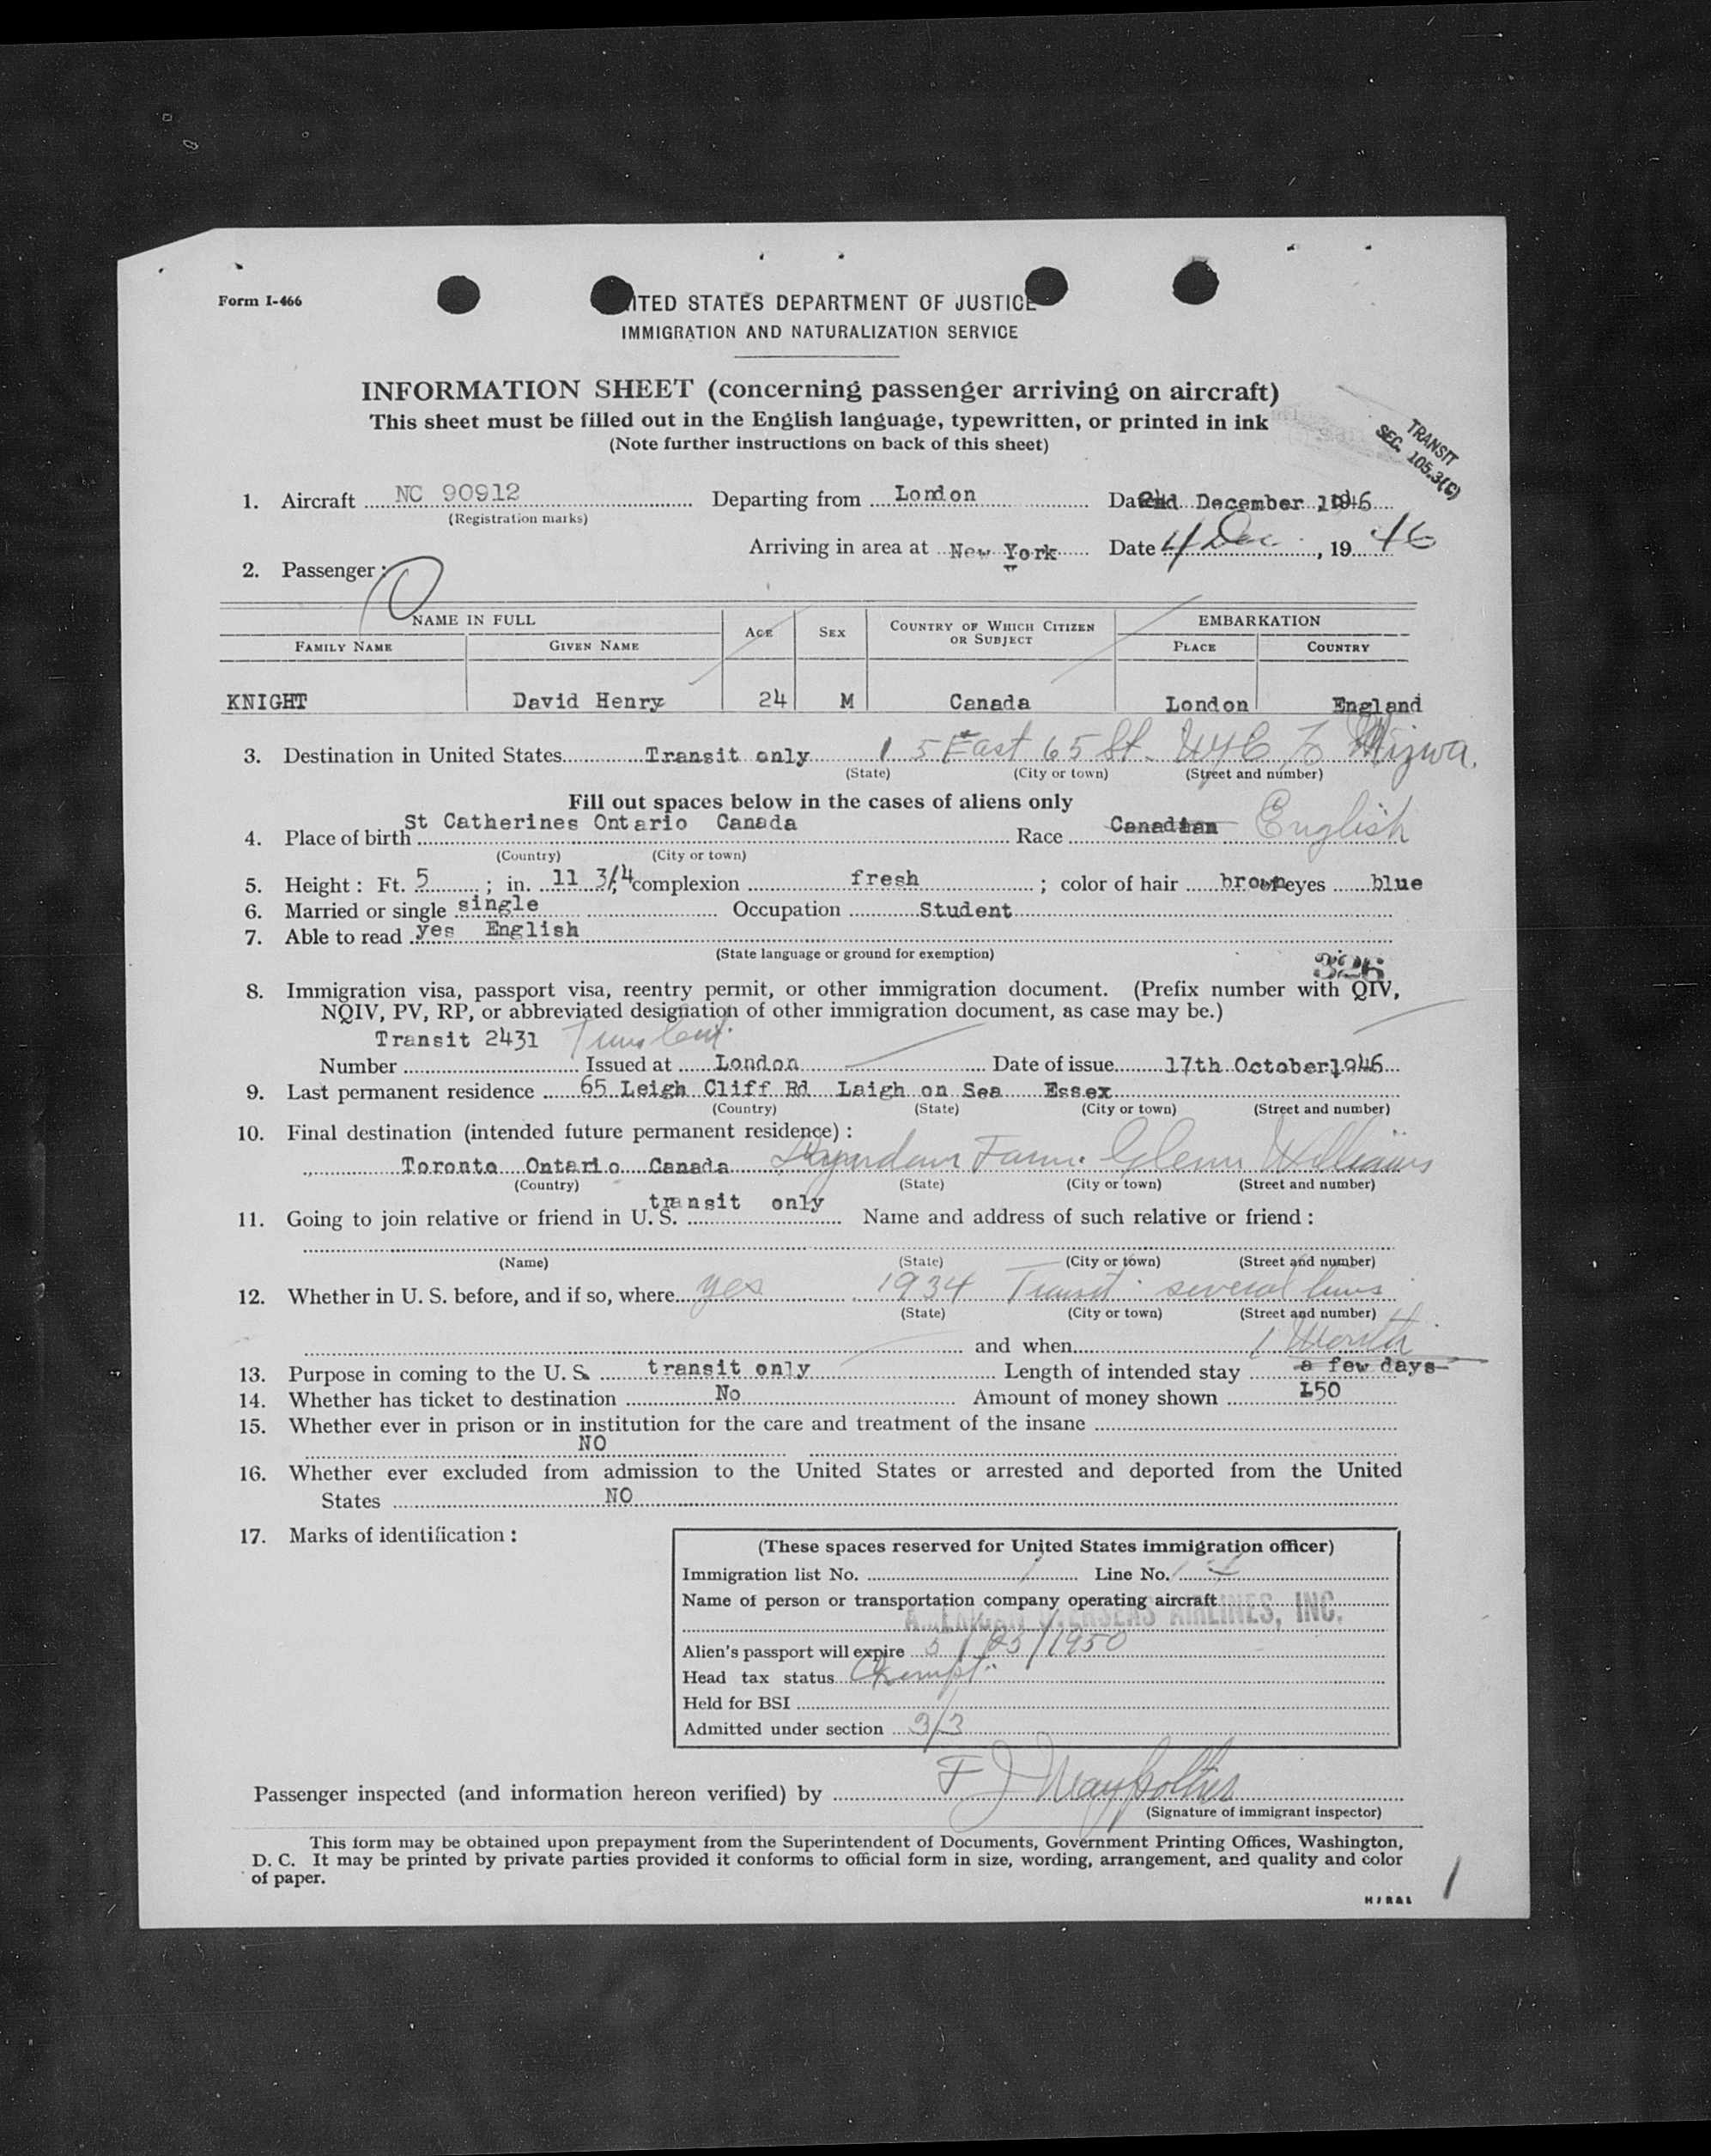 Form I-466
UNITED STATES DEPARTMENT OF JUSTICE
IMMIGRATION AND NATURALIZATION SERVICE
INFORMATION SHEET (concerning passenger arriving on aircraft)
This sheet must be filled out in the English language, typewritten, or printed in ink
(Note further instructions on back of this sheet)
TRANSIT
SEC. 105.3(C)
1. Aircraft NC 90912 Departing from London Date December 1946
(Registration marks)
Arriving in area at New York Date 4 Dec, 19 46
2. Passenger:
NAME IN FULL AGE SEX COUNTRY OF WHICH CITIZEN OR SUBJECT EMBARKATION
FAMILY NAME GIVEN NAME PLACE COUNTRY
KNIGHT David Henry 24 M Canada London England
3. Destination in United States Transit only 15 East 65 St. NYC
(State) (City or town) (Street and number)
Fill out spaces below in the cases of aliens only
4. Place of birth St Catherines Ontario Canada Race Canadian English
(Country) (City or town)
5. Height: Ft. 5; in. 11 3/4; complexion fresh; color of hair brown eyes blue
6. Married or single single Occupation Student
7. Able to read yes English
(State language or ground for exemption)
326
8. Immigration visa, passport visa, reentry permit, or other immigration document. (Prefix number with QIV,
NQIV, PV, RP, or abbreviated designation of other immigration document, as case may be.)
Transit 2431
Number Issued at London Date of issue 17th October 1946
9. Last permanent residence 65 Leigh Cliff Rd Laigh on Sea Essex
(Country) (State) (City or town) (Street and number)
10. Final destination (intended future permanent residence):
Toronto Ontario Canada Farm Glenn Williams
(Country) (State) (City or town) (Street and number)
11. Going to join relative or friend in U. S. transit only Name and address of such relative or friend:
(Name) (State) (City or town) (Street and number)
12. Whether in U. S. before, and if so, where yes 1934 Transit several
(State) (City or town) (Street and number)
and when 1 Month
13. Purpose in coming to the U. S. transit only Length of intended stay a few days
14. Whether has ticket to destination No Amount of money shown 150
15. Whether ever in prison or in institution for the care and treatment of the insane
NO
16. Whether ever excluded from admission to the United States or arrested and deported from the United
States NO
17. Marks of identification:
(These spaces reserved for United States immigration officer)
Immigration list No. 1 Line No.
Name of person or transportation company operating aircraft
AMERICAN OVERSEAS AIRLINES, INC.
Alien's passport will expire 5/25/1950
Head tax status Exempt
Held for BSI
Admitted under section 3/3
Passenger inspected (and information hereon verified) by
(Signature of immigrant inspector)
This form may be obtained upon prepayment from the Superintendent of Documents, Government Printing Offices, Washington,
D. C. It may be printed by private parties provided it conforms to official form in size, wording, arrangement, and quality and color
of paper.
1